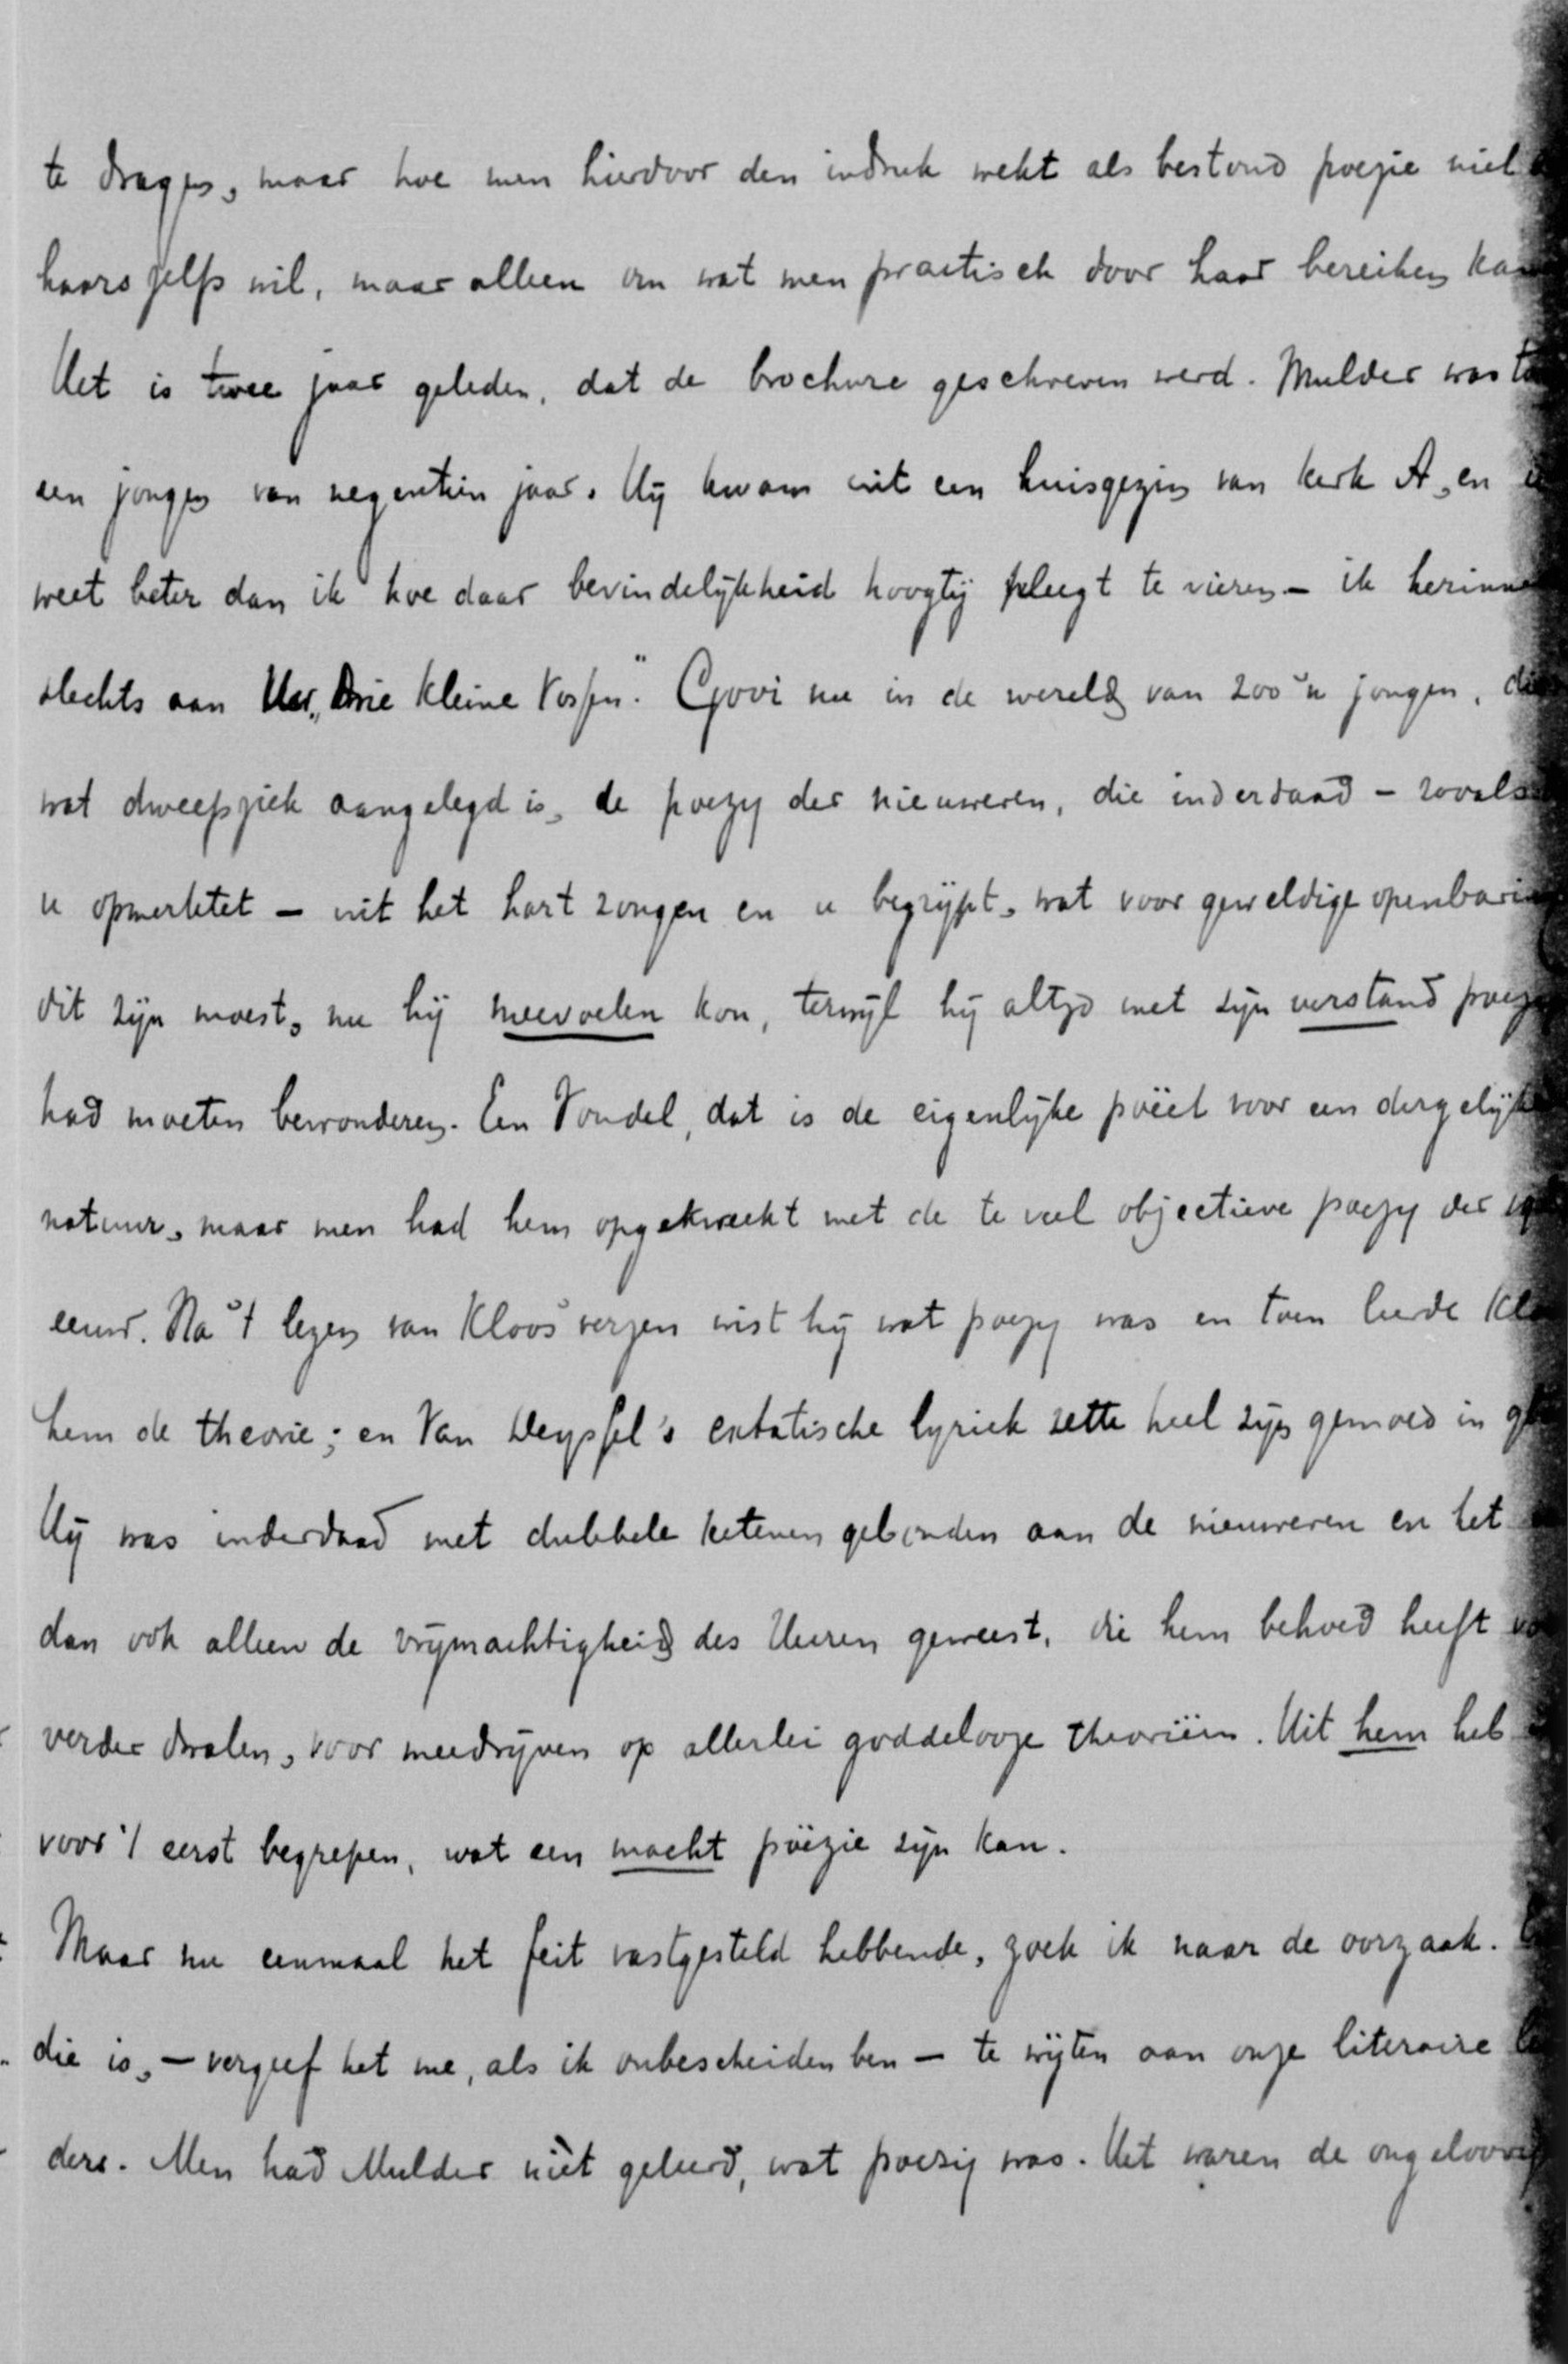 te dragen, maar hoe men hierdoor den indruk wekt als bestond poezie niet
haars zelfs wil, maar alleen om wat men practisch door haar bereiken kan
Het is twee jaar geleden, dat de brochure geschreven werd. Mulder was
een jongen van negentien jaar. Hij kwam uit een huisgezin van kerk A, en
weet beter dan ik hoe daar bevindelijkheid hoogtij pleegt te vieren – ik
slechts aan Uw "Drie kleine Vossen". Gooi nu in de wereld van zoo'n jongen, die
wat dweepziek aangelegd is, de poezy der nieuweren, die inderdaad – zooals
u opmerktet – uit het hart zongen en u begrijpt, wat voor geweldige
dit zijn moest, nu hij meevoelen kon, terwijl hij altijd met zijn verstand
had moeten bewonderen. En Vondel, dat is de eigenlijke poëet voor een
natuur, maar men had hem opgekweekt met de te veel objectieve poezy der
eeuw. Na 't lezen van Kloos' verzen wist hij wat poezy was en toen leerde
hem de theorie; en Van Deyssel's extatische lyriek zette heel zijn gemoed in
Hij was inderdaad met dubbele ketenen gebonden aan de nieuweren en het
dan ook alleen de vrijmachtigheid des Heeren geweest, die hem behoed heeft
verder dwalen, voor meedrijven op allerlei goddelooze theoriëen. Uit hem heb
voor 't eerst begrepen, wat een macht poëzie zijn kan.
Maar nu eenmaal het feit vastgesteld hebbende, zoek ik naar de oorzaak.
die is, – vergeef het me, als ik onbescheiden ben – te wijten aan onze literaire
ders. Men had Mulder niet geleerd, wat poezij was. Het waren de